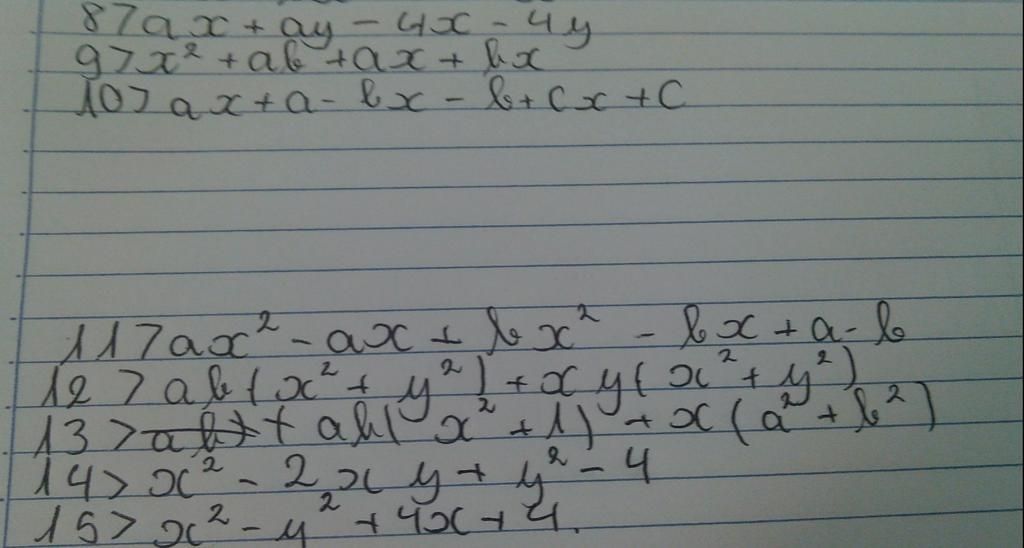 8> ax + ay - 4x - 4y
9> x² + ab + ax + bx
10> ax + a - bx - b + cx + c
11> ax² - ax + bx² - bx + a - b
12> ab(x² + y²) + xy(x² + y²)
13> ab(x² + 1) + x(a² + b²)
14> x² - 2xy + y² - 4
15> x² - y² + 4x + 4.